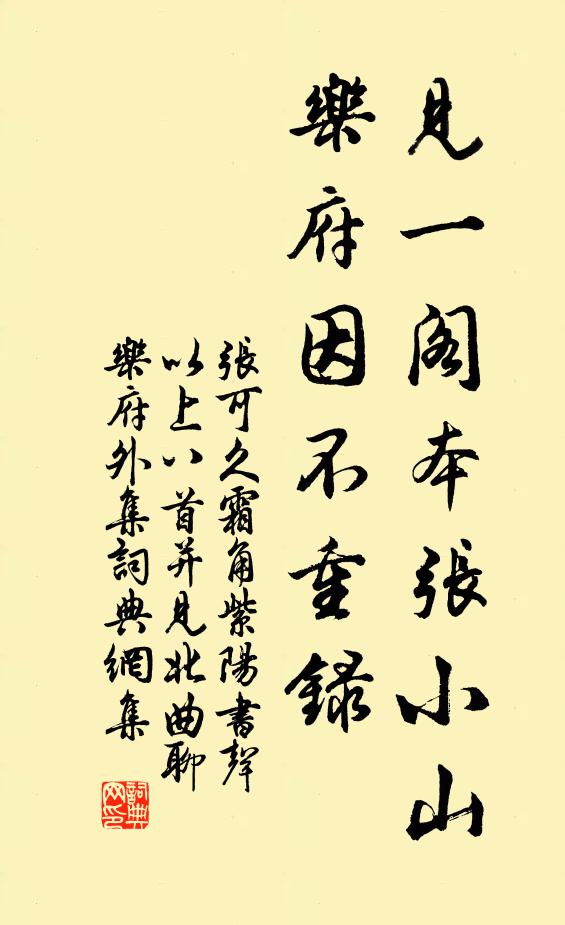 見一閣本張小山
樂府因不重録
張可久霜角紫陽書聲
以上八首并見北曲聊
樂府外集詞典網集
詞典網印